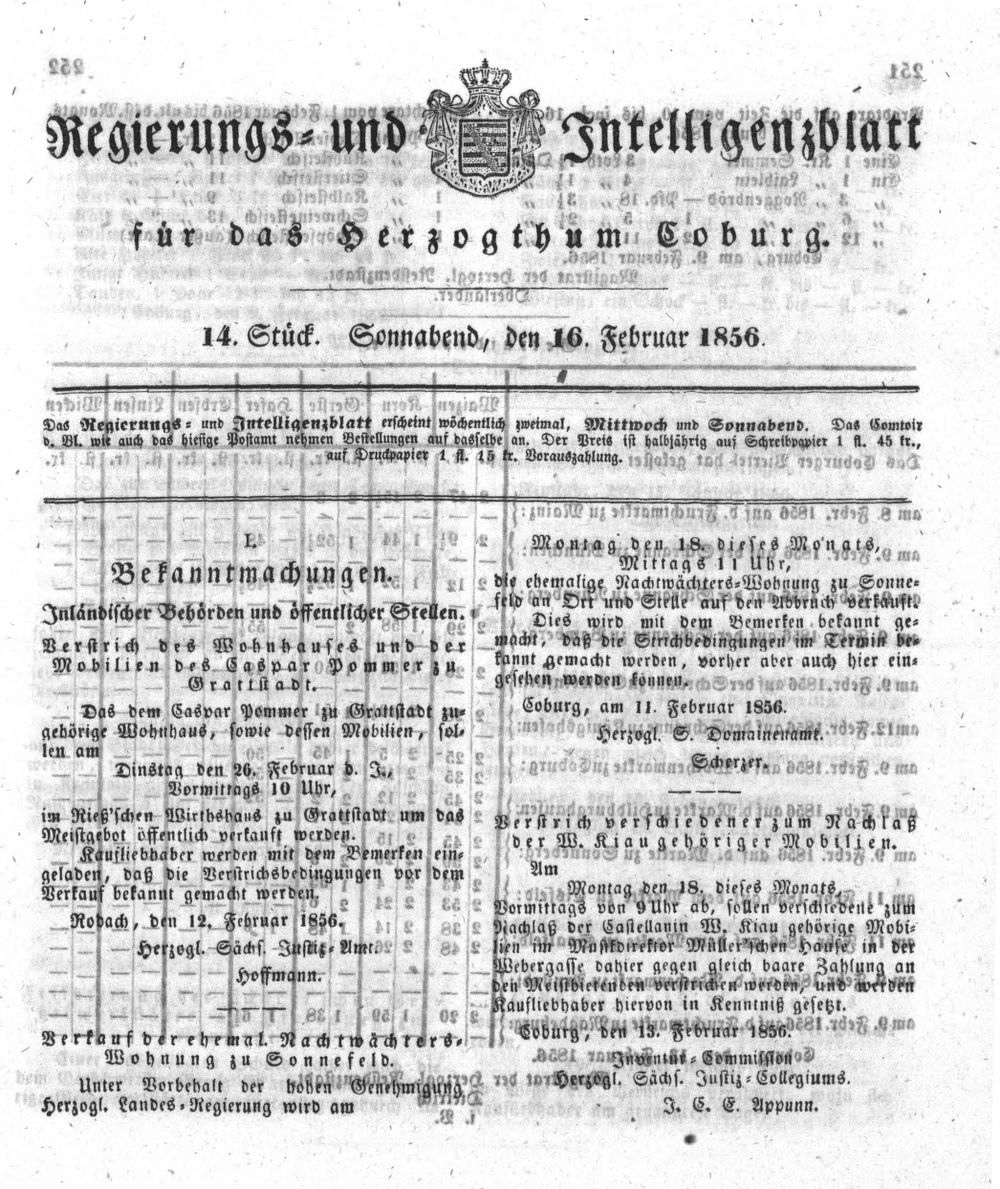 Regierungs- und Intelligenzblatt
für das Herzogthum Coburg.
14. Stück. Sonnabend, den 16. Februar 1856.
Das Regierungs- und Intelligenzblatt erscheint wöchentlich zweimal, Mittwoch und Sonnabend. Das Comtoir
d. Bl. wie auch das hiesige Postamt nehmen Bestellungen auf dasselbe an. Der Preis ist halbjährig auf Schreibpapier 1 fl. 45 kr.,
auf Druckpapier 1 fl. 15 kr. Vorauszahlung.
I.
Bekanntmachungen.
Inländischer Behörden und öffentlicher Stellen.
Verstrich des Wohnhauses und der
Mobilien des Caspar Pommer zu
Grattstadt.
Das dem Caspar Pommer zu Grattstadt zu-
gehörige Wohnhaus, sowie dessen Mobilien, sol-
len am
Dinstag den 26. Februar d. J.,
Vormittags 10 Uhr,
im Rieß'schen Wirthshaus zu Grattstadt um das
Meistgebot öffentlich verkauft werden.
Kaufliebhaber werden mit dem Bemerken ein-
geladen, daß die Verstrichsbedingungen vor dem
Verkauf bekannt gemacht werden.
Rodach, den 12. Februar 1856.
Herzogl. Sächs. Justiz-Amt.
Hoffmann.
Verkauf der ehemal. Nachtwächters-
Wohnung zu Sonnefeld.
Unter Vorbehalt der hohen Genehmigung
Herzogl. Landes-Regierung wird am
Montag den 18. dieses Monats,
Mittags 11 Uhr,
die ehemalige Nachtwächters-Wohnung zu Sonne-
feld an Ort und Stelle auf den Abbruch verkauft.
Dies wird mit dem Bemerken bekannt ge-
macht, daß die Strichbedingungen im Termin be-
kannt gemacht werden, vorher aber auch hier ein-
gesehen werden können.
Coburg, am 11. Februar 1856.
Herzogl. S. Domainenamt.
Scherzer.
Verstrich verschiedener zum Nachlaß
der W. Kiau gehöriger Mobilien.
Am
Montag den 18. dieses Monats,
Vormittags von 9 Uhr ab, sollen verschiedene zum
Nachlaß der Castellanin W. Kiau gehörige Mobi-
lien im Musikdirektor Müller'schen Hause in der
Webergasse dahier gegen gleich baare Zahlung an
den Meistbietenden verstrichen werden, und werden
Kaufliebhaber hiervon in Kenntniß gesetzt.
Coburg, den 13. Februar 1856.
Inventur-Commission
Herzogl. Sächs. Justiz-Collegiums.
J. C. E. Appunn.